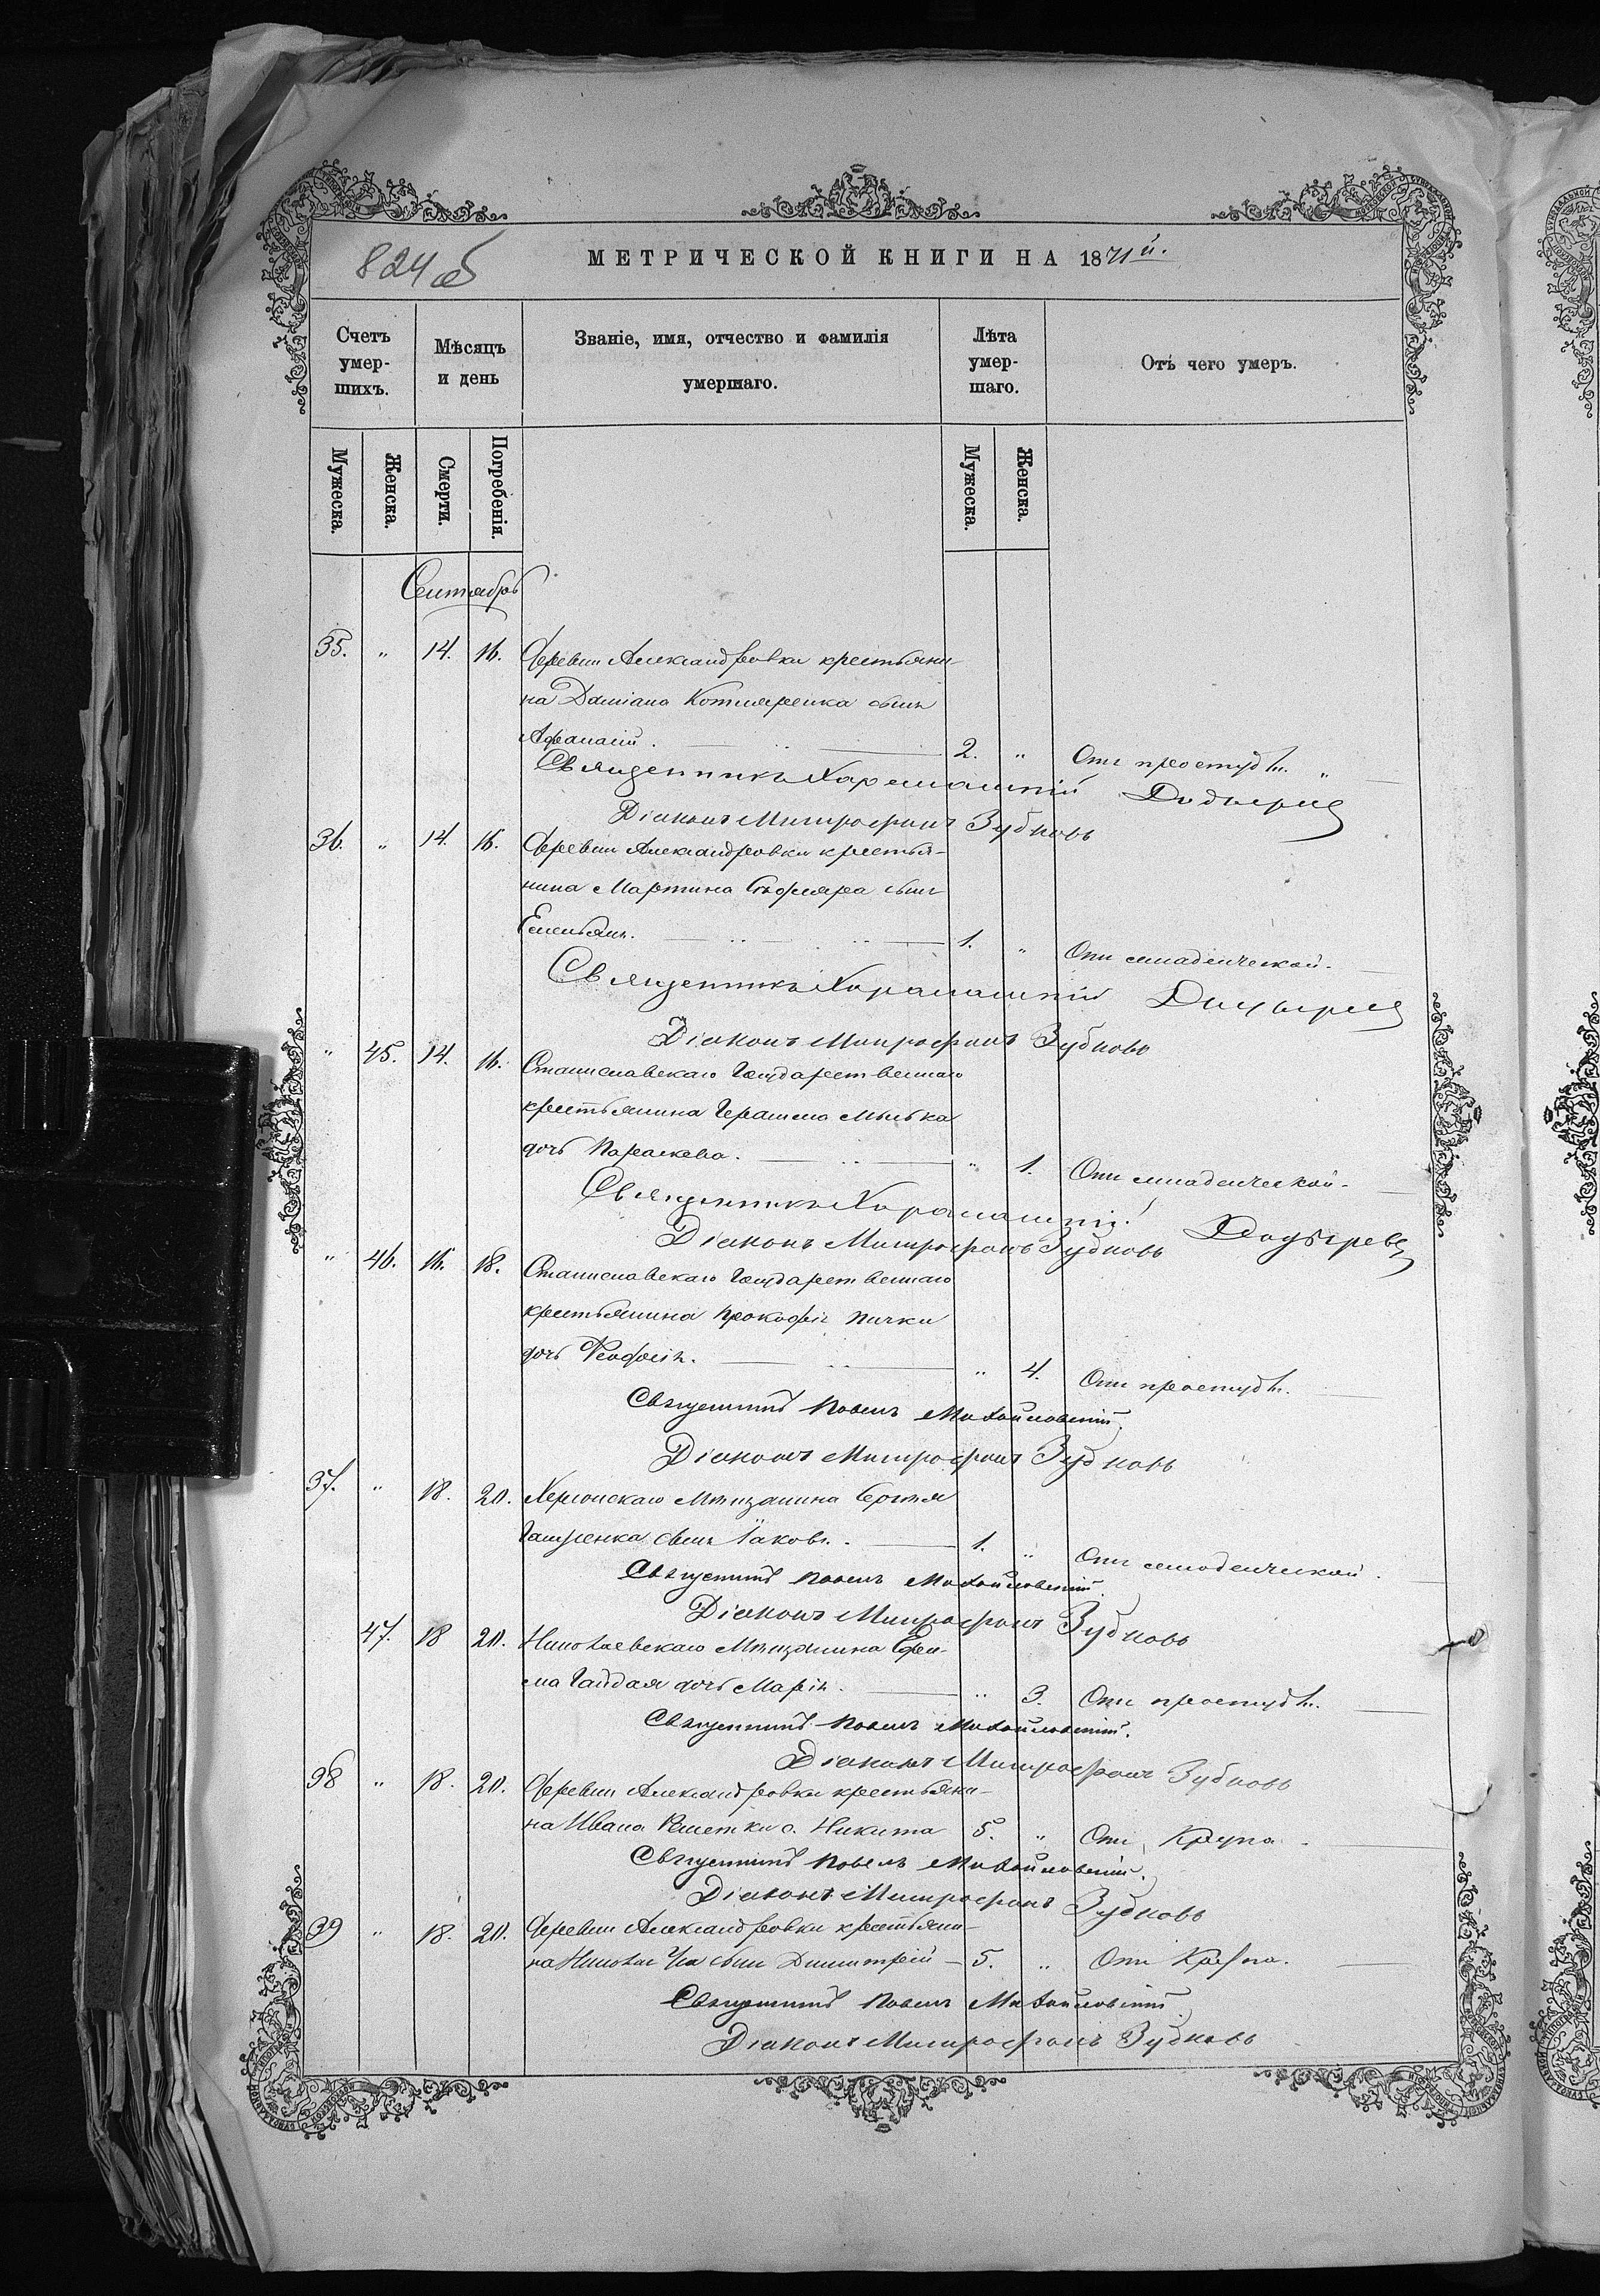 824 об
МЕТРИЧЕСКОЙ КНИГИ НА 1871й.
Счетъ умершихъ.
Мѣсяцъ и день
Званіе, имя, отчество и фамилія умершаго.
Лѣта умершаго.
Отъ чего умеръ.
Мужеска.
Женска.
Смерти.
Погребенія.
Мужеска.
Женска.
Сентябрь
35. „ 14. 16. Деревни Александровки крестьяни-
на Даміана Котляренка сынъ
Афанасій. 2. „ Отъ простуды. „
Священникъ Харлампій
Діаконъ Митрофанъ Зубковъ
36. „ 14. 16. Деревни Александровки крестья-
нина Мартина Столяра сынъ
Емельянъ. 1. „ Отъ младенческой.
Священникъ Харлампій
Діаконъ Митрофанъ Зубковъ
„ 45. 14. 16. Станиславскаго Государственнаго
крестьянина Герасима
дочь Параскева. „ 1. Отъ младенческой.
Священникъ Харлампій
Діаконъ Митрофанъ Зубковъ
„ 46. 16. 18. Станиславскаго Государственнаго
крестьянина Прокофія Пички
дочь Феодосія. „ 4. Отъ простуды.
Священникъ Павелъ Михайловскій.
Діаконъ Митрофанъ Зубковъ
37. „ 18. 20. Херсонскаго Мѣщанина Сергѣя
сынъ Іаковъ. 1. „ Отъ младенческой.
Священникъ Павелъ Михайловскій.
Діаконъ Митрофанъ Зубковъ
47. 18 20. Николаевскаго Мѣщанина Ефи-
ма Гайдая дочь Марія. „ 3. Отъ простуды.
Священникъ Павелъ Михайловскій.
Діаконъ Митрофанъ Зубковъ
38 „ 18. 20. Деревни Александровки крестьяни-
на Ивана с. Никита 5. „ Отъ Крупа.
Священникъ Павелъ Михайловскій.
Діаконъ Митрофанъ Зубковъ
39 „ 18. 20. Деревни Александровки крестьяни-
на сынъ Димитрій 5. „ Отъ Крупа.
Священникъ Павелъ Михайловскій.
Діаконъ Митрофанъ Зубковъ